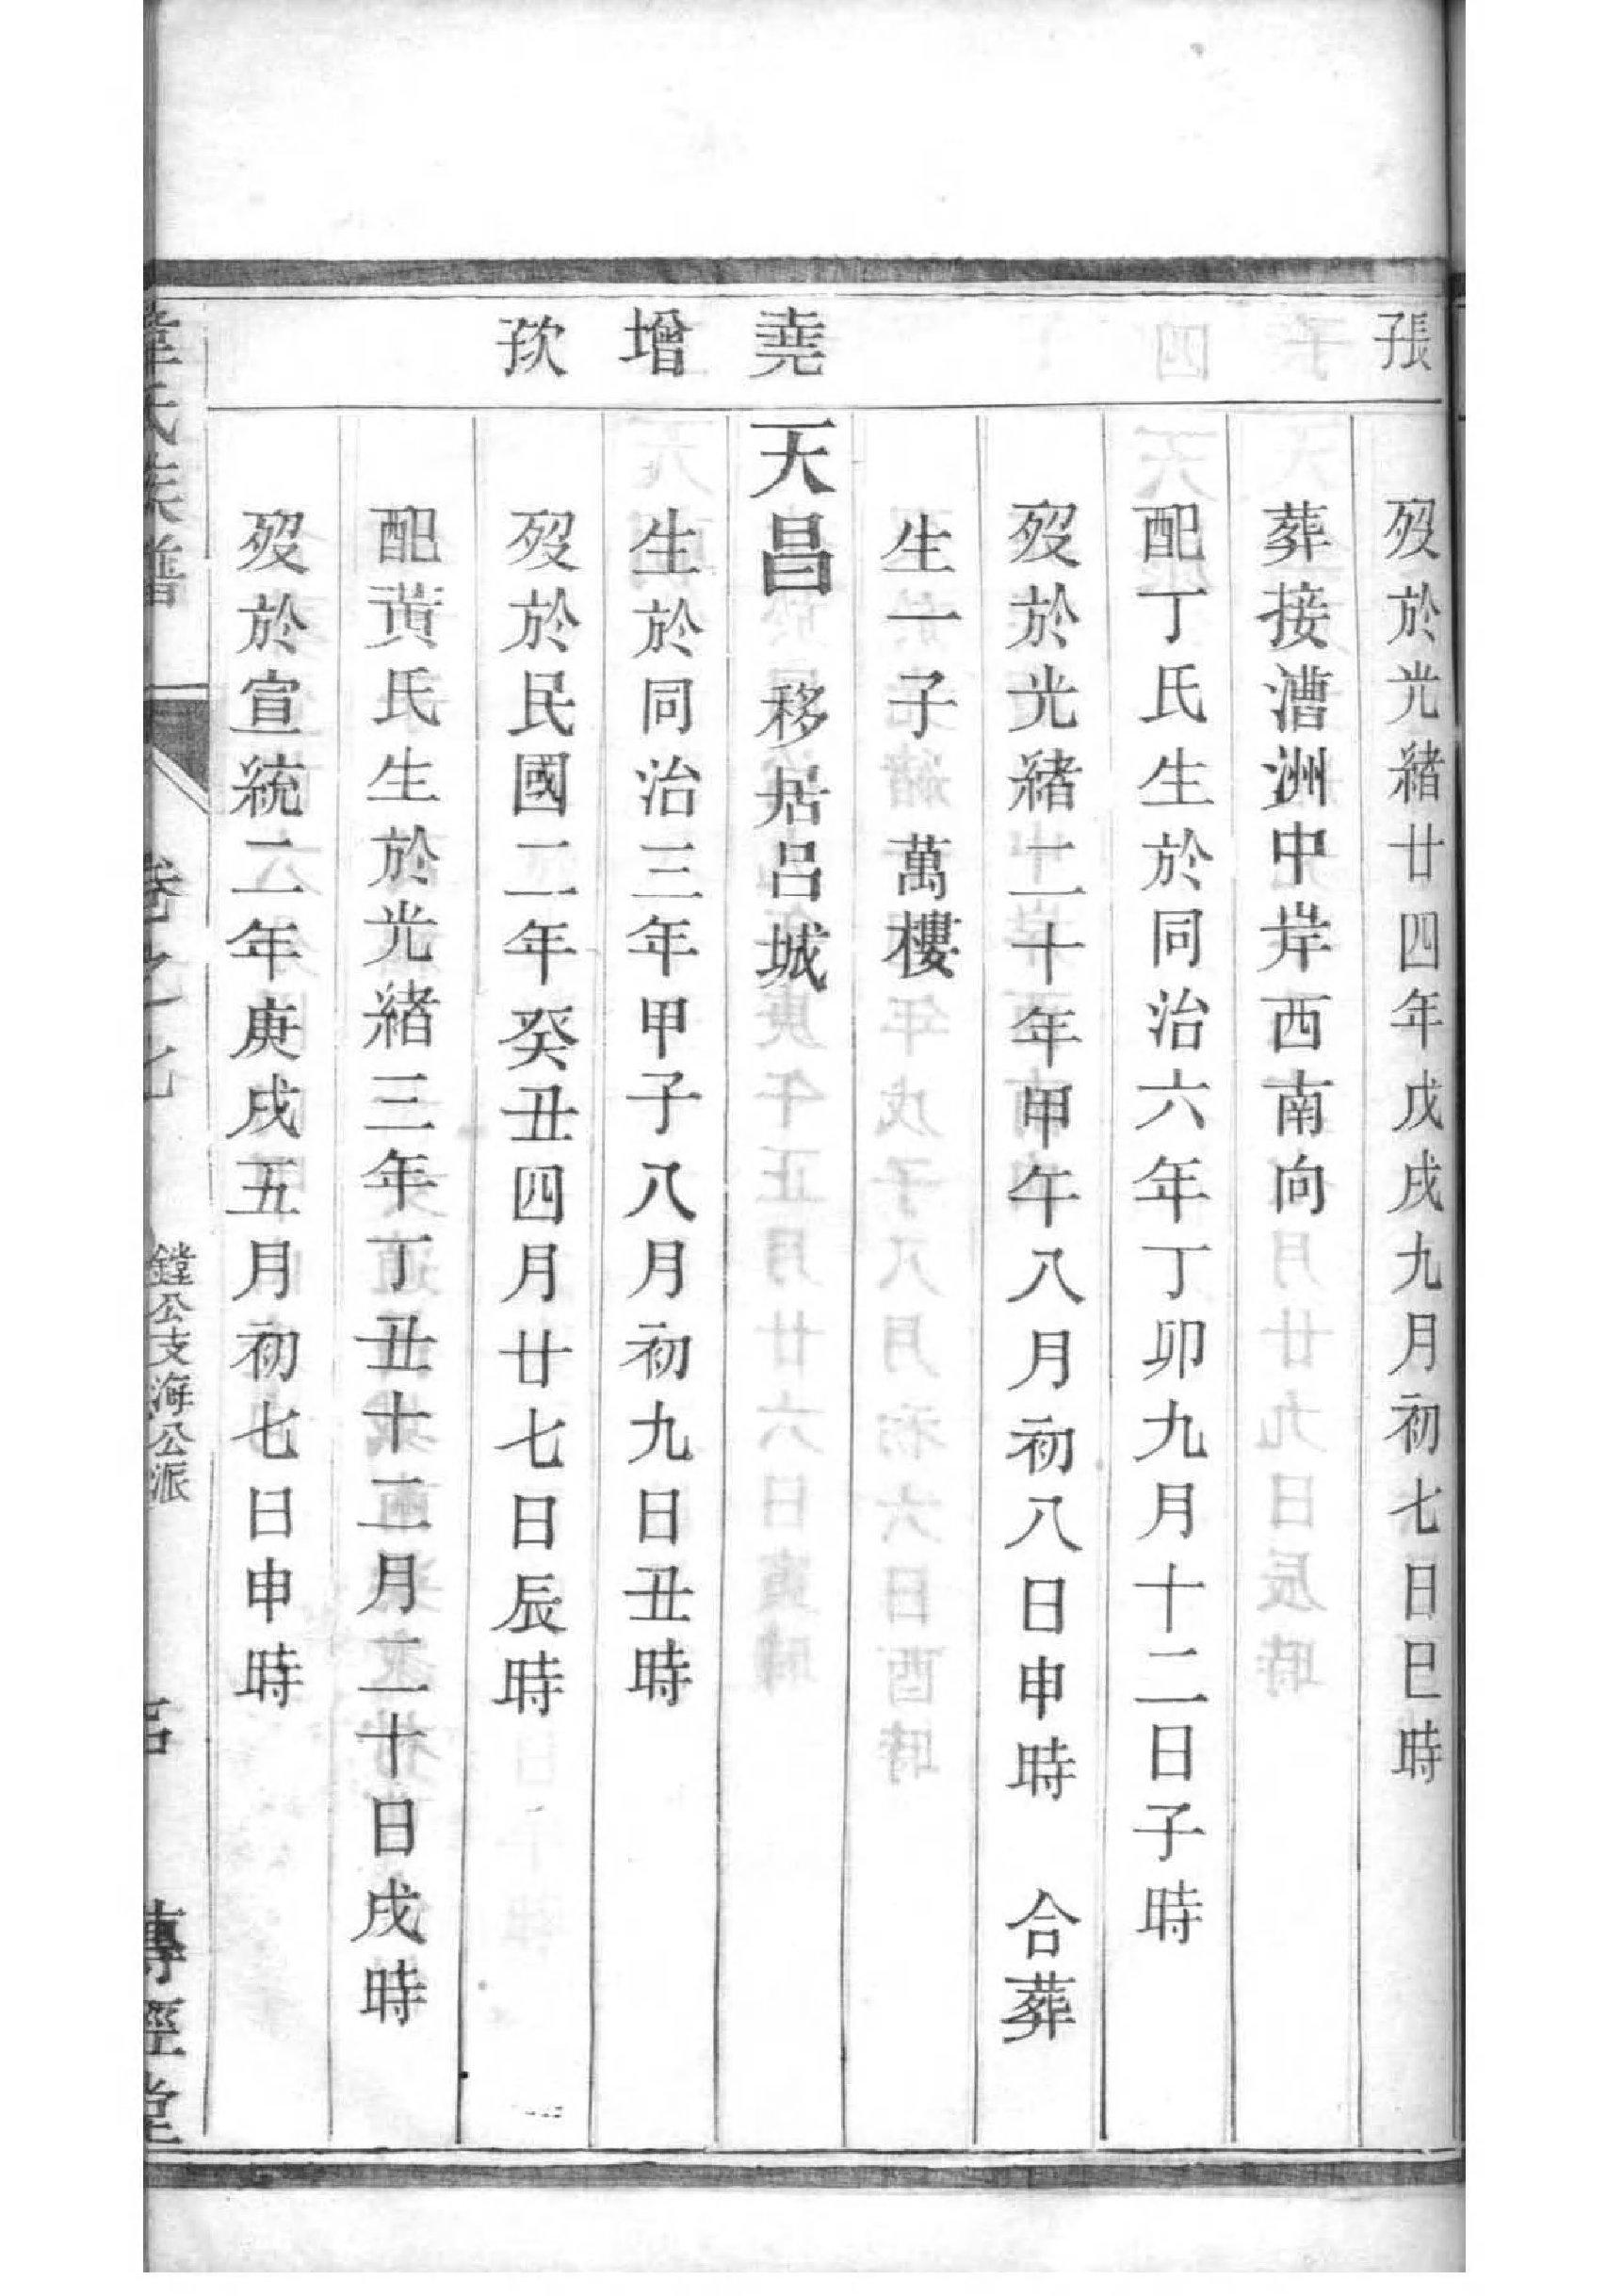 張
歿於光緒廿四年戊戌九月初七日巳時
葬接漕洲中岸西南向
配丁氏生於同治六年丁卯九月十二日子時
歿於光緒二十年甲午八月初八日申時 合葬
生一子 萬樓
堯增
天昌 移居呂城
生於同治三年甲子八月初九日丑時
歿於民國二年癸丑四月廿七日辰時
配黃氏生於光緒三年丁丑十二月二十日戌時
歿於宣統二年庚戌五月初七日申時
韋氏族譜
卷之七
鏜公支海公派
傳經堂